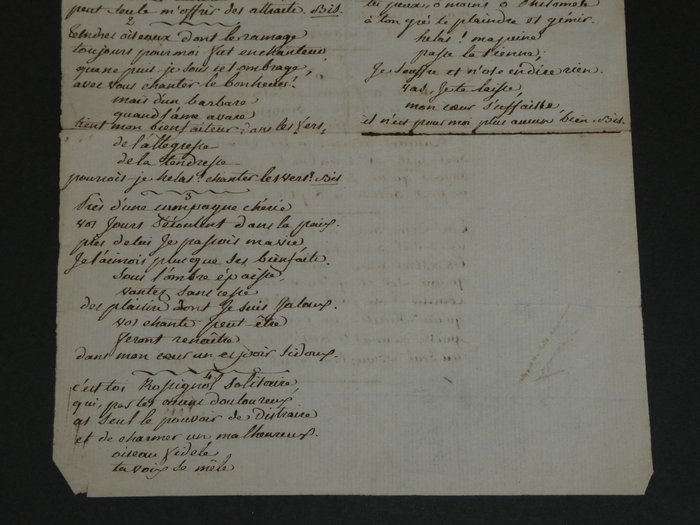 peut seule m'offrir des attraits. Bis.
2
tendres oiseaux dont le ramage
toujours pour moi fut enchanteur
que ne puis-je sous cet ombrage,
avec vous chanter le bonheur!
mais d'un barbare
quand l'ame avare
tient mon bienfaiteur dans les fers,
de l'allegresse
de la tendresse
pourrois-je helas! chanter les vers? Bis
3
Près d'une compagne chérie
vos jours s'écoulent dans la paix.
près de lui Je passois ma vie
Je l'aimois plus que ses bienfaits.
sous l'ombre épaisse,
vantez sans cesse
des plaisirs dont Je suis Jaloux.
vos chants peut être
feront renaître
dans mon cœur un espoir si doux.
4
c'est toi Rossignol solitaire,
qui, par tes accens douloureux
as seul le pouvoir de distraire
et de charmer un malheureux.
oiseau fidele
ta voix se mêle
tu peux, o moins o Philomele
à ton gré te plaindre et gémir.
helas! ma peine
passe la tienne;
Je souffre et n'ose en dire rien.
vas, Je te laisse,
mon cœur s'affaisse,
il n'est pour moi plus aucun bien. Bis.